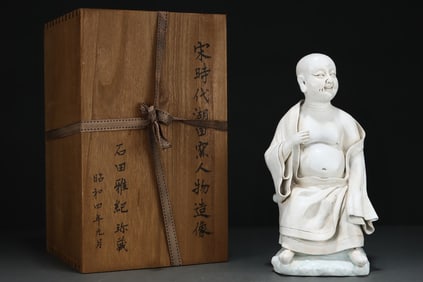 宋時代湖田窯人物造像
石田雅紀珍藏
昭和四年九月